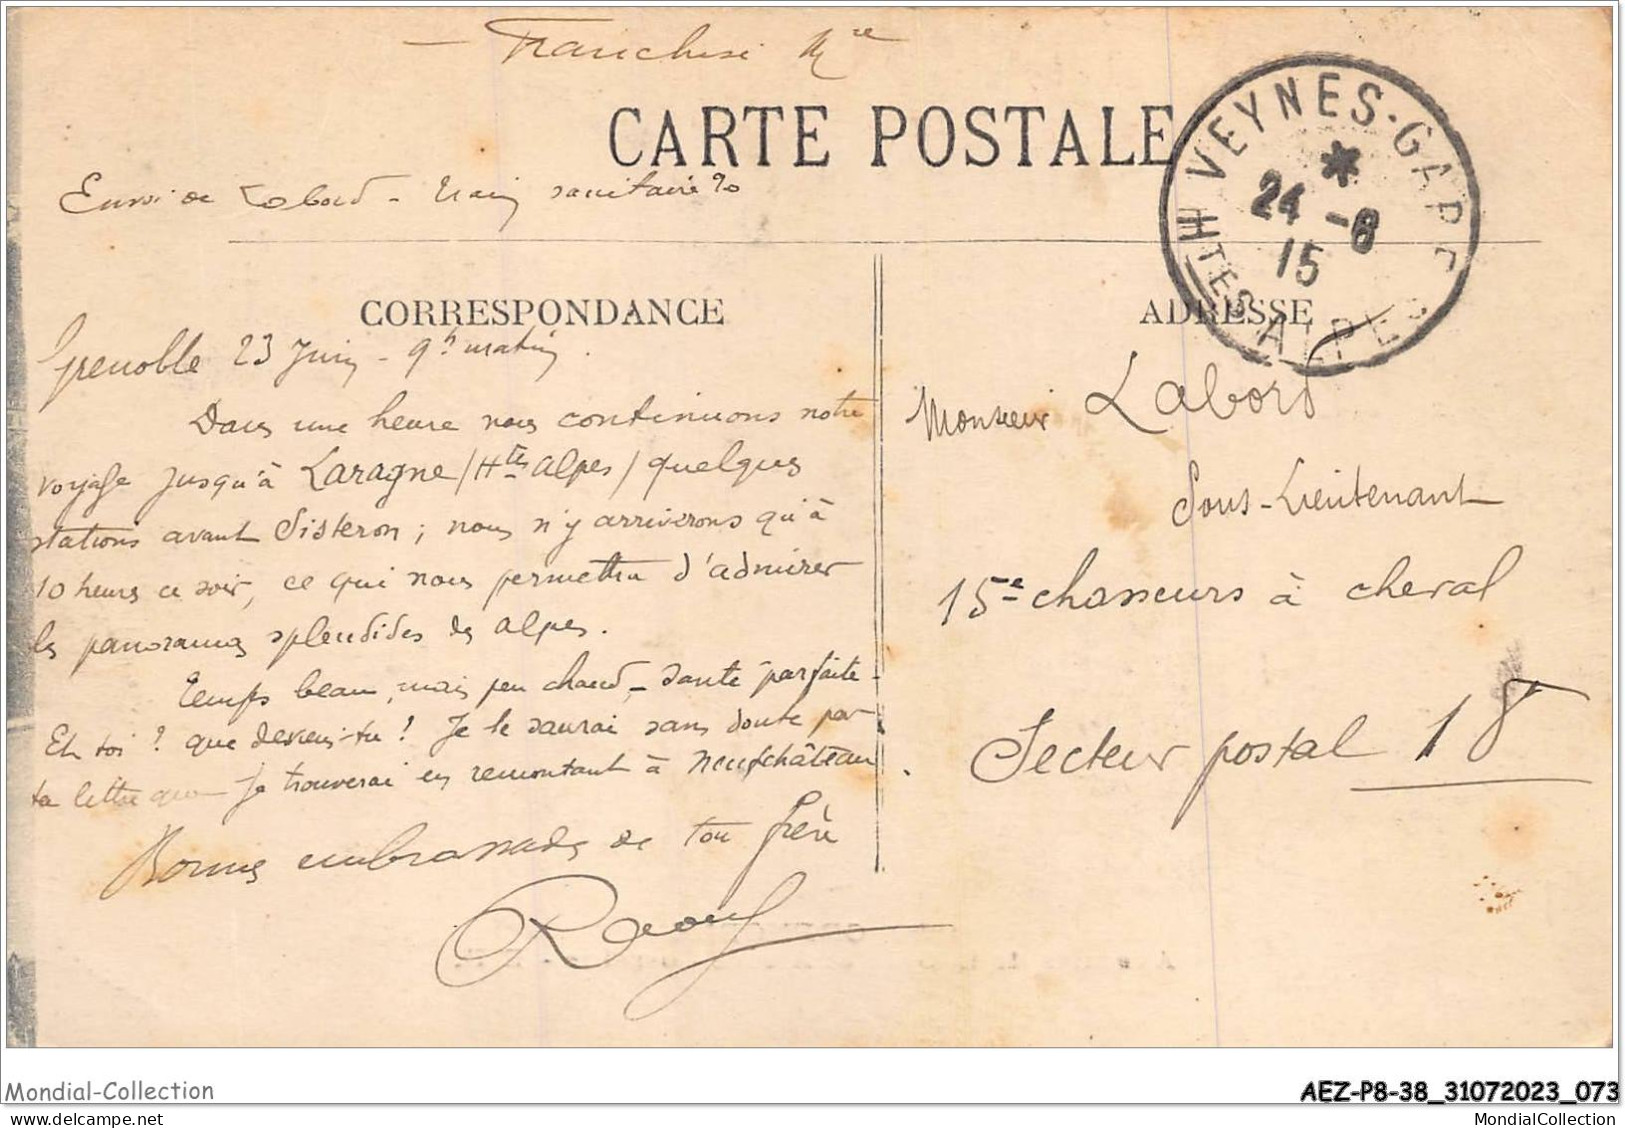 – Franchise Mre
CARTE POSTALE
Envoi de Labord - train sanitaire 20
VEYNES-GAP
*
24 -6
15
HTES ALPES
CORRESPONDANCE
ADRESSE
Grenoble 23 Juin - 9h matin.
Dans une heure nous continuons notre
voyage jusqu'à Laragne /Htes Alpes/ quelques
stations avant Sisteron ; nous n'y arriverons qu'à
10 heures ce soir, ce qui nous permettra d'admirer
les panoramas splendides des Alpes.
Temps beau, mais peu chaud - Santé parfaite -
Et toi ? que deviens-tu ! Je le saurai sans doute par
ta lettre que je trouverai en remontant à Neufchâteau.
Bonnes embrassades de ton frère
Raoul
Monsieur Labord
Sous-Lieutenant
15e chasseurs à cheval
Secteur postal 18
Mondial-Collection
AEZ-P8-38_31072023_073
MondialCollection